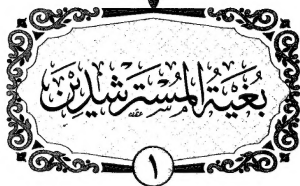 بُغْيَةُ المُسْتَرْشِدِيْن
١